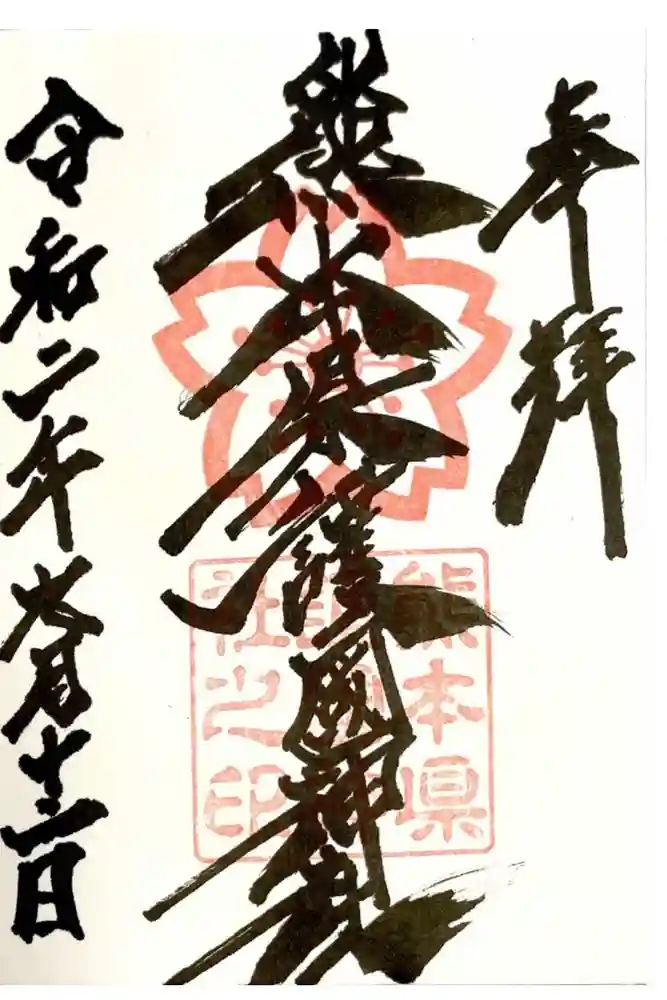 奉拝
熊本県護國神社
熊本県
社之印
令和二年六月十二日